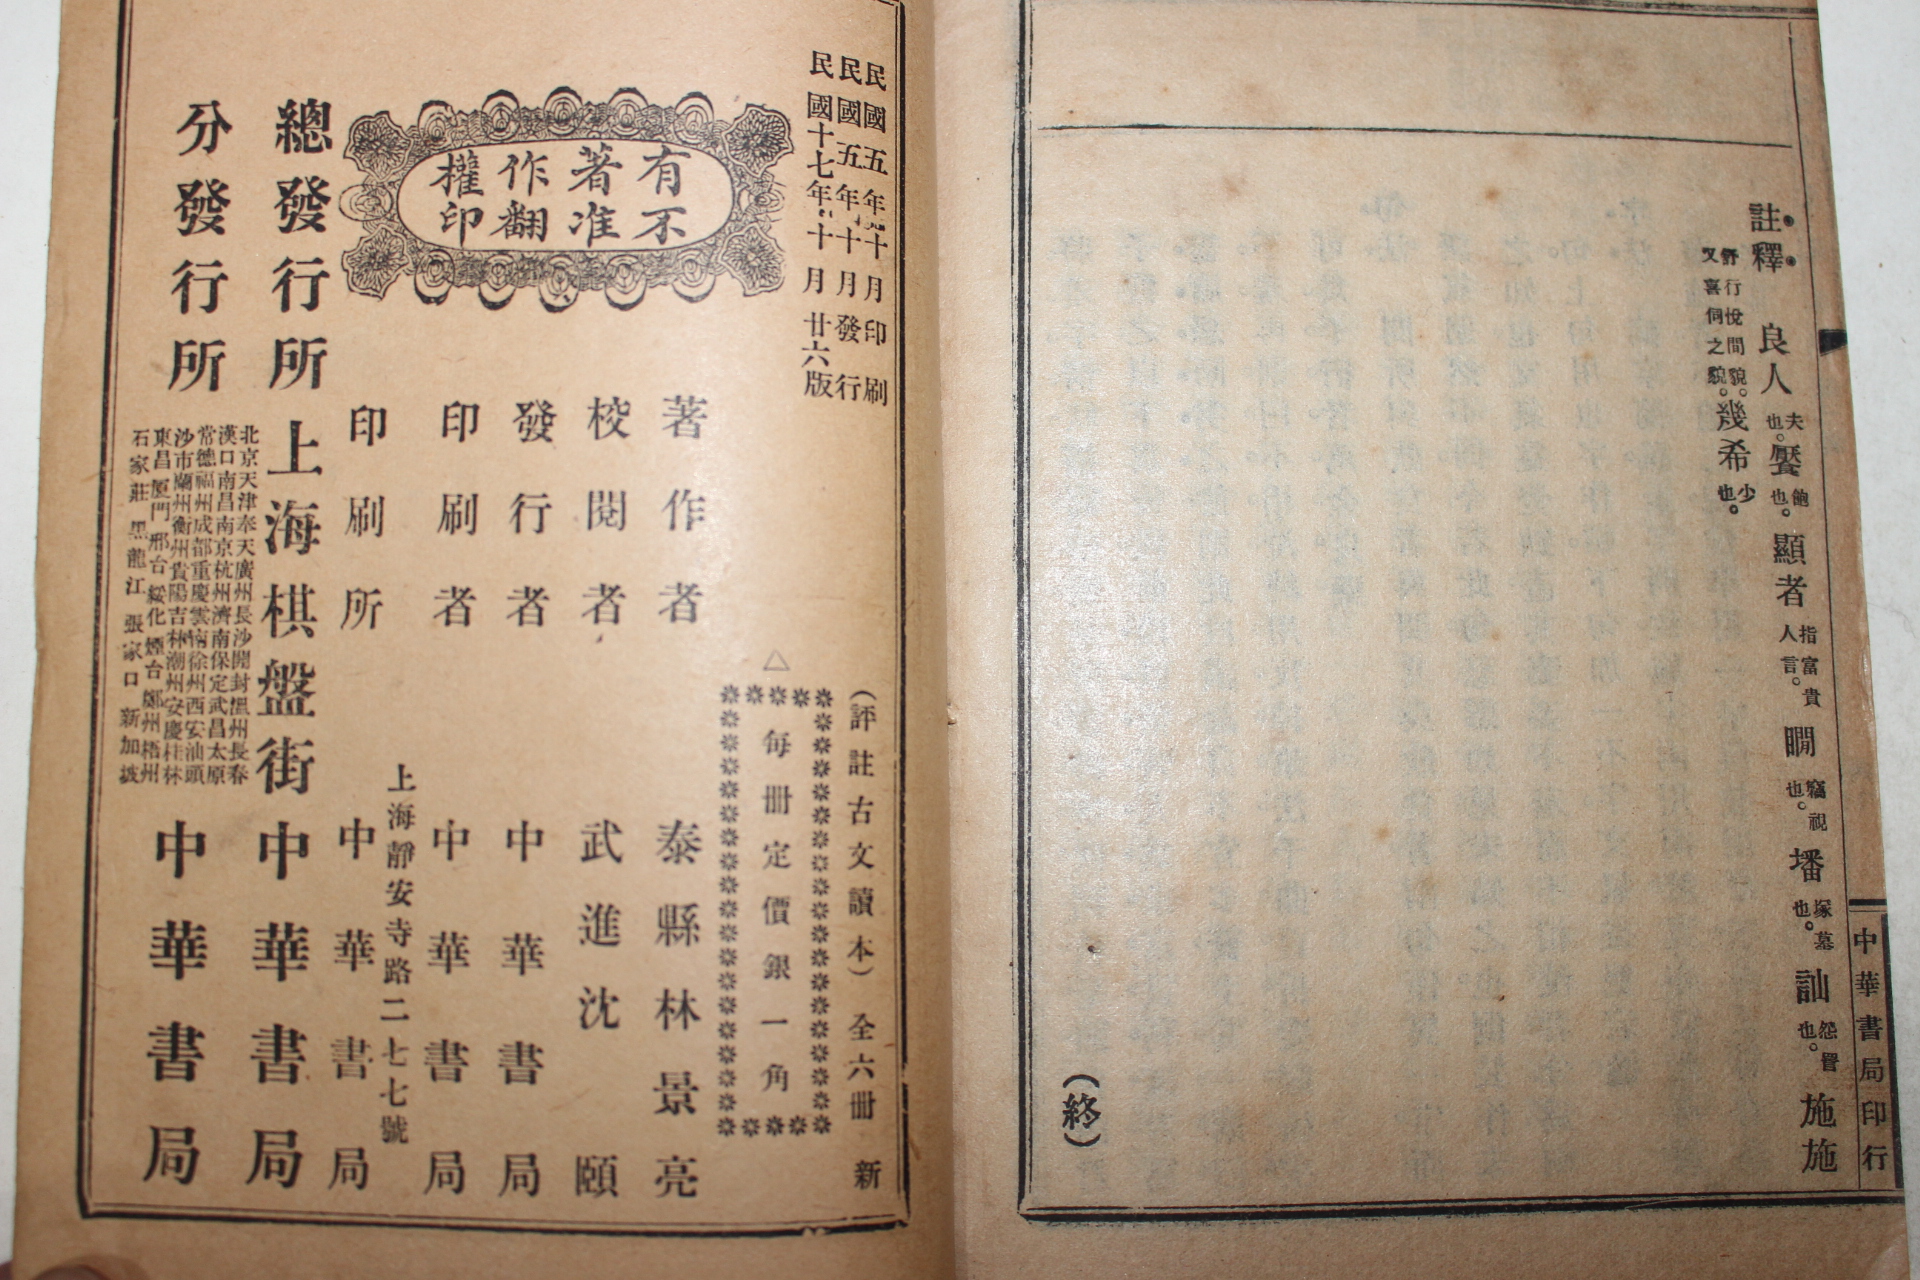 註釋 良人夫也。饜飽也。顯者指富貴人言。瞷竊視也。墦塚墓也。訕怨詈也。施施
舒行伺間之貌。又喜悅貌。幾希少也。
(終)
中華書局印行
民國五年十月印刷
民國五年十月發行
民國十七年十月廿六版
有著作權
不准翻印
(評註古文讀本)全六冊 新
△
每冊定價銀一角
著作者 泰縣林景亮
校閱者 武進沈頤
發行者 中華書局
印刷者 中華書局
上海靜安寺路二七七號
印刷所 中華書局
總發行所 上海棋盤街 中華書局
分發行所 中華書局
北京天津奉天廣州長沙開封溫州長春
漢口南昌南京杭州濟南保定武昌太原
常德福州成都重慶雲南徐州西安汕頭
沙市蘭州衡州貴陽吉林潮州安慶桂林
東昌廈門邢台綏化煙台鄭州梧州
石家莊 黑龍江 張家口 新加坡